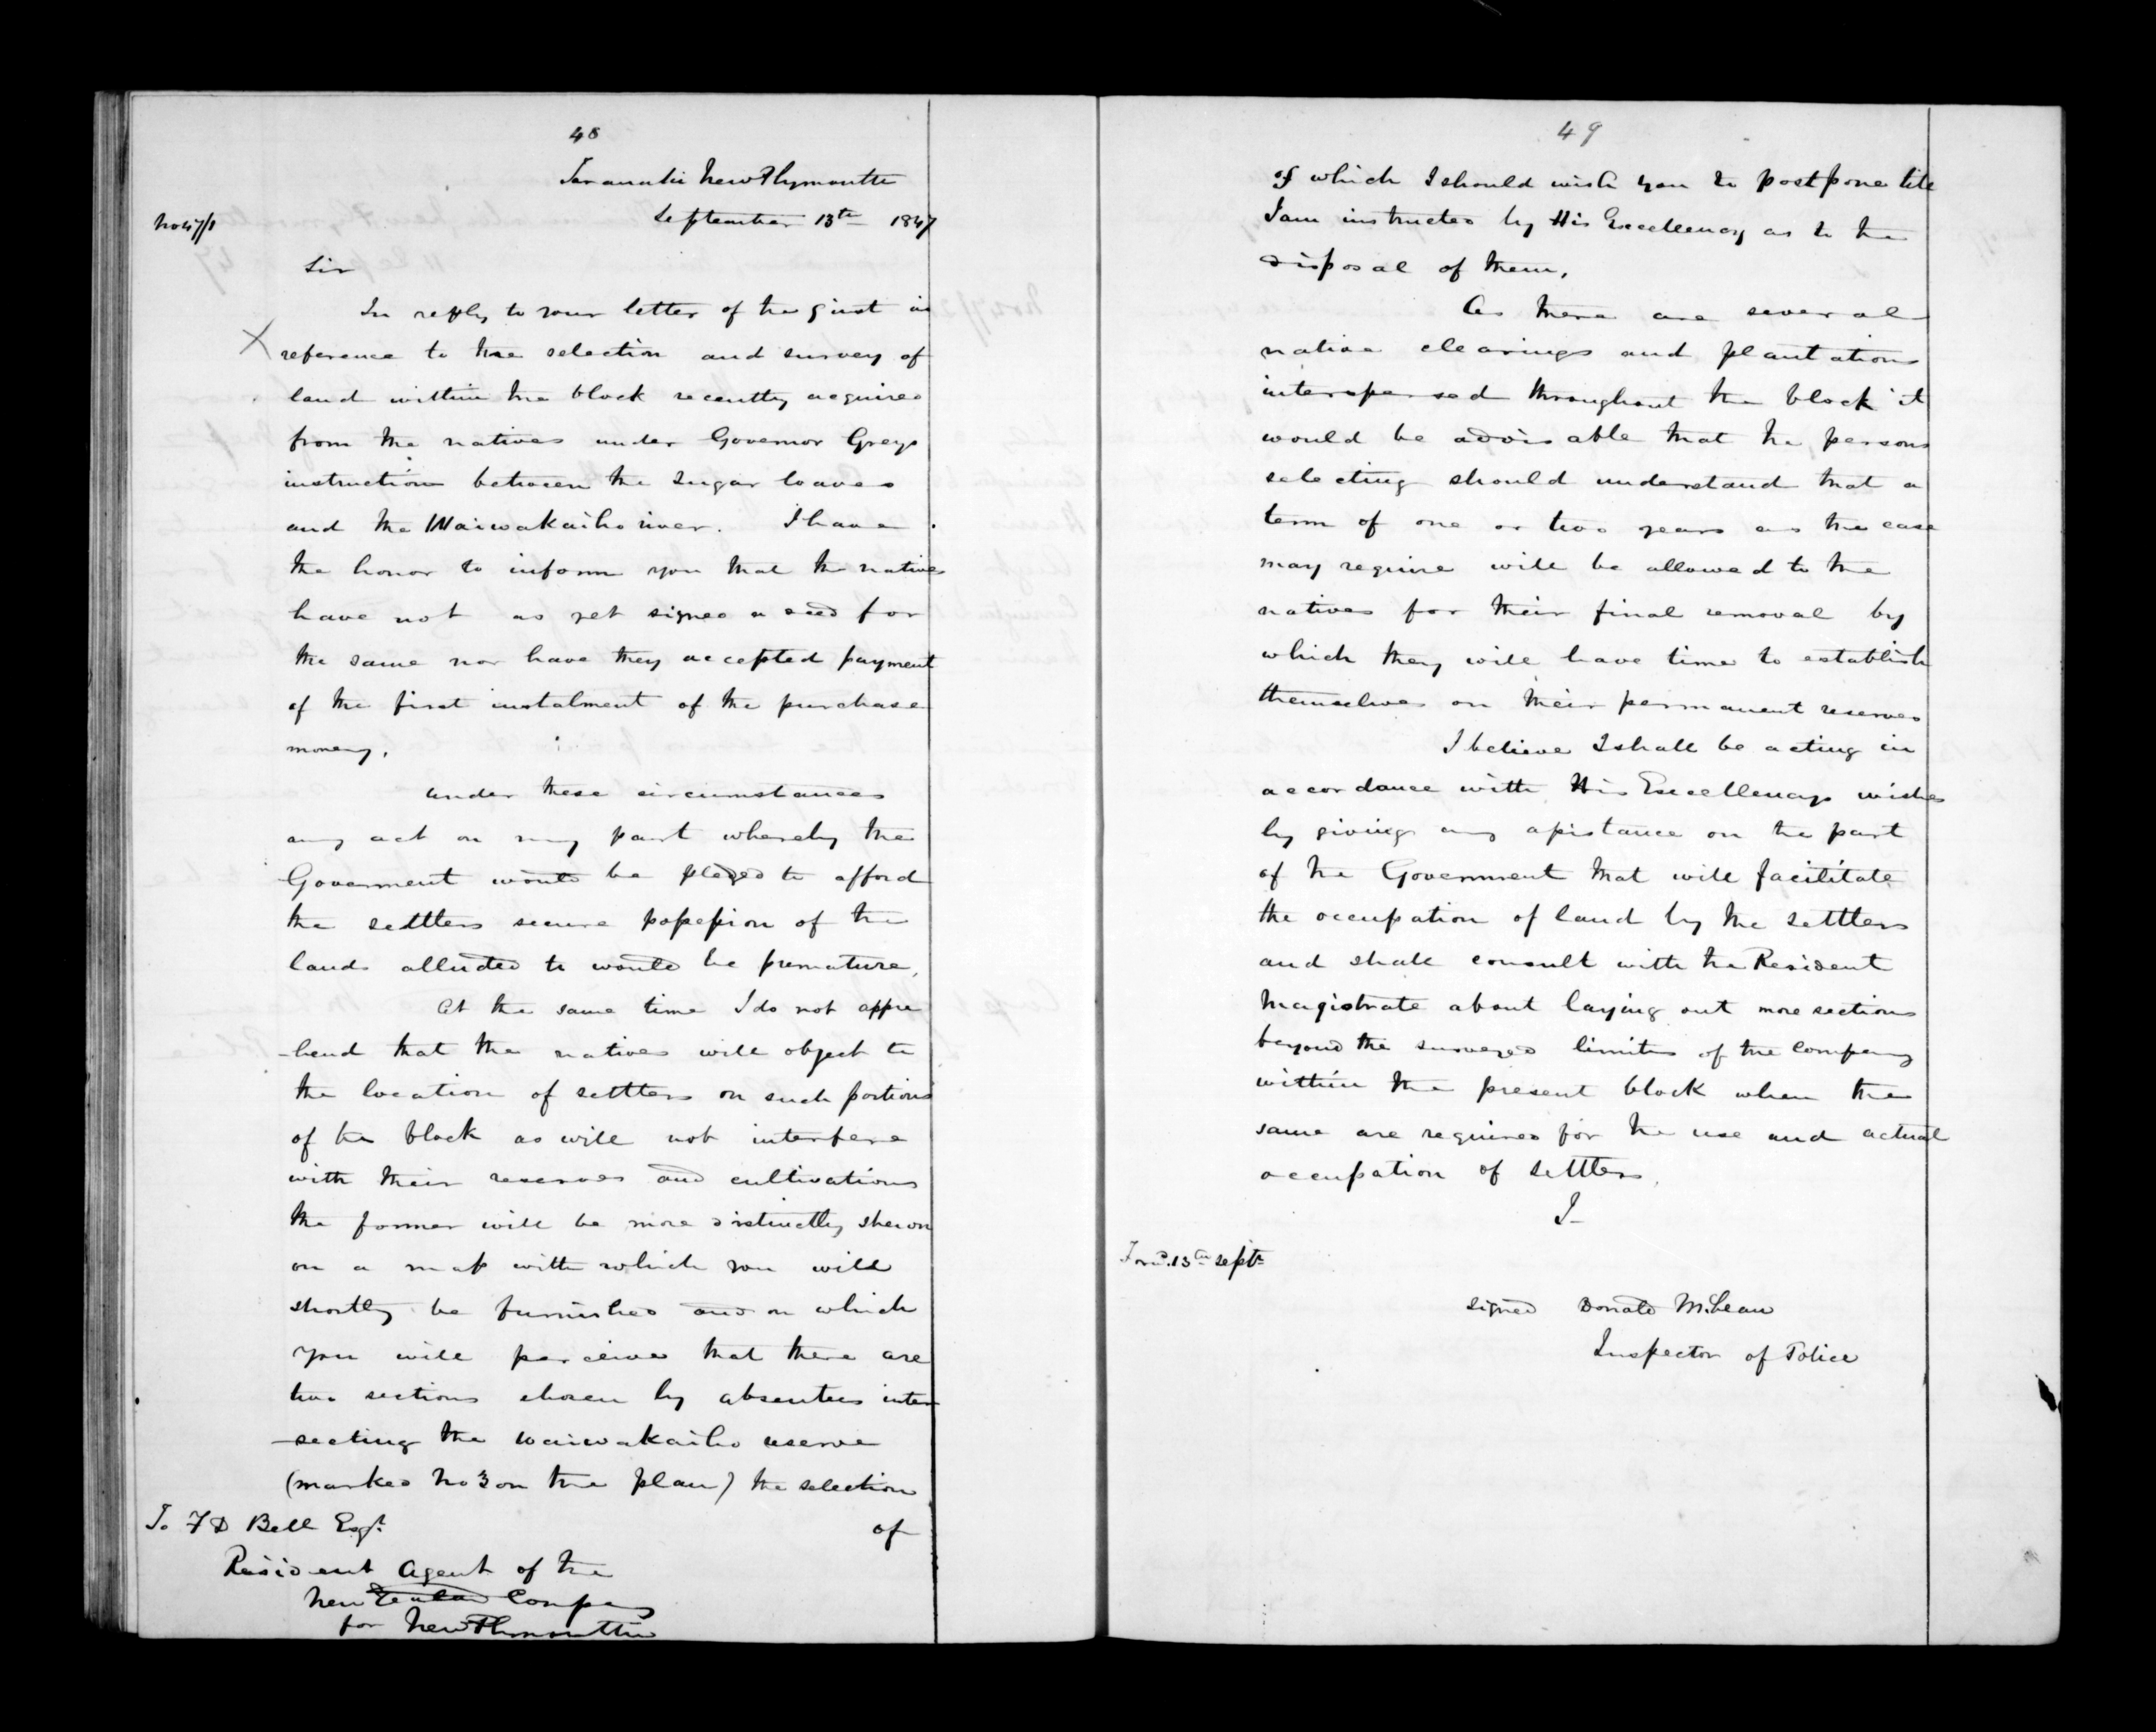 48
Taranaki New Plymouth
September 13th 1847
No 47/1
Sir
In reply to your letter of the 9 inst in
reference to the selection and survey of
land within the block recently acquired
from the natives under Governor Greys
instructions between the Sugar loaves
and the Waiwakaiho river. I have
the honor to inform you that the natives
have not as yet signed a deed for
the same nor have they accepted payment
of the first instalment of the purchase
money.
Under these circumstances
any act on my part whereby the
Goverment would be pledged to afford
the settlers secure possession of the
lands alluded to would be premature.
At the same time I do not appre
-hend that the natives will object to
the location of settlers on such portions
of the block as will not interfere
with their reserves and cultivations
the former will be more distinctly shewn
on a map with which you will
shortly be furnished and on which
you will perceive that there are
two sections chosen by absentees inter
-secting the Waiwakaiho reserve
(marked No 3 on the plan) the selection
of
To F D Bell Esqr.
Resident Agent of the
New Zealand Company
for New Plymouth
49
of which I should wish you to postpone till
I am instructed by His Excellency as to the
disposal of them.
As there are several
native clearings and plantations
interspersed throughout the block it
would be advisable that the persons
selecting should understand that a
term of one or two years as the case
may require will be allowed to the
natives for their final removal by
which they will have time to establish
themselves on their permanent reserves
I believe I shall be acting in
accordance with His Excellencys wishes
by giving any assistance on the part
of the Government that will facilitate
the occupation of land by the settlers
and shall consult with the Resident
Magistrate about laying out more sections
beyond the surveyed limits of the Company
within the present block when the
same are required for the use and actual
occupation of settlers.
I
Forwd. 13th Sept
Signed Donald McLean
Inspector of Police